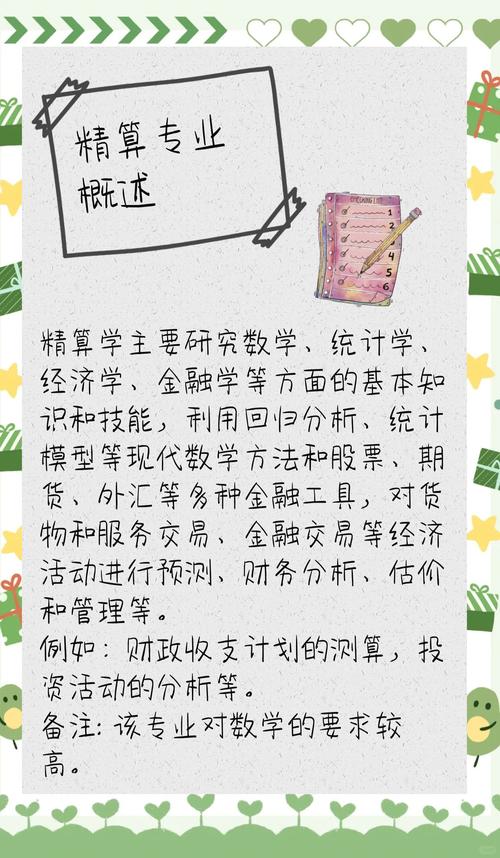 精算专业
概述
1
2
4
5
6
精算学主要研究数学、统计学、
经济学、金融学等方面的基本知
识和技能，利用回归分析、统计
模型等现代数学方法和股票、期
货、外汇等多种金融工具，对货
物和服务交易、金融交易等经济
活动进行预测、财务分析、估价
和管理等。
例如：财政收支计划的测算，投
资活动的分析等。
备注：该专业对数学的要求较
高。